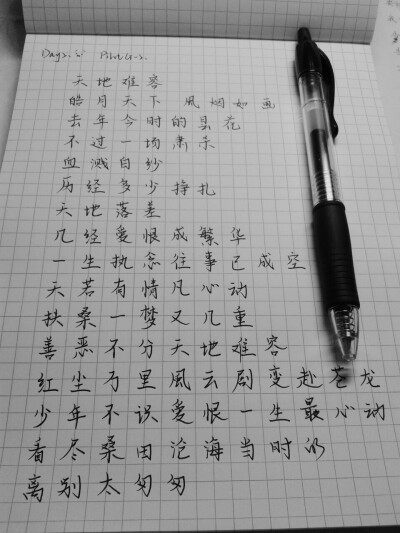 Day2. Pilot G-2.
天地难容
皓月天下 風烟如画
去年今时的昙花
不过一场肃杀
血溅白纱
历经多少挣扎
天地落差
几经爱恨成繁华
一生执念往事已成空
天若有情凡心动
扶桑一梦又几重
善恶不分天地难容
红尘万里風云剧变赴苍龙
少年不识爱恨一生最心动
看尽桑田沧海当时的
离别太匆匆